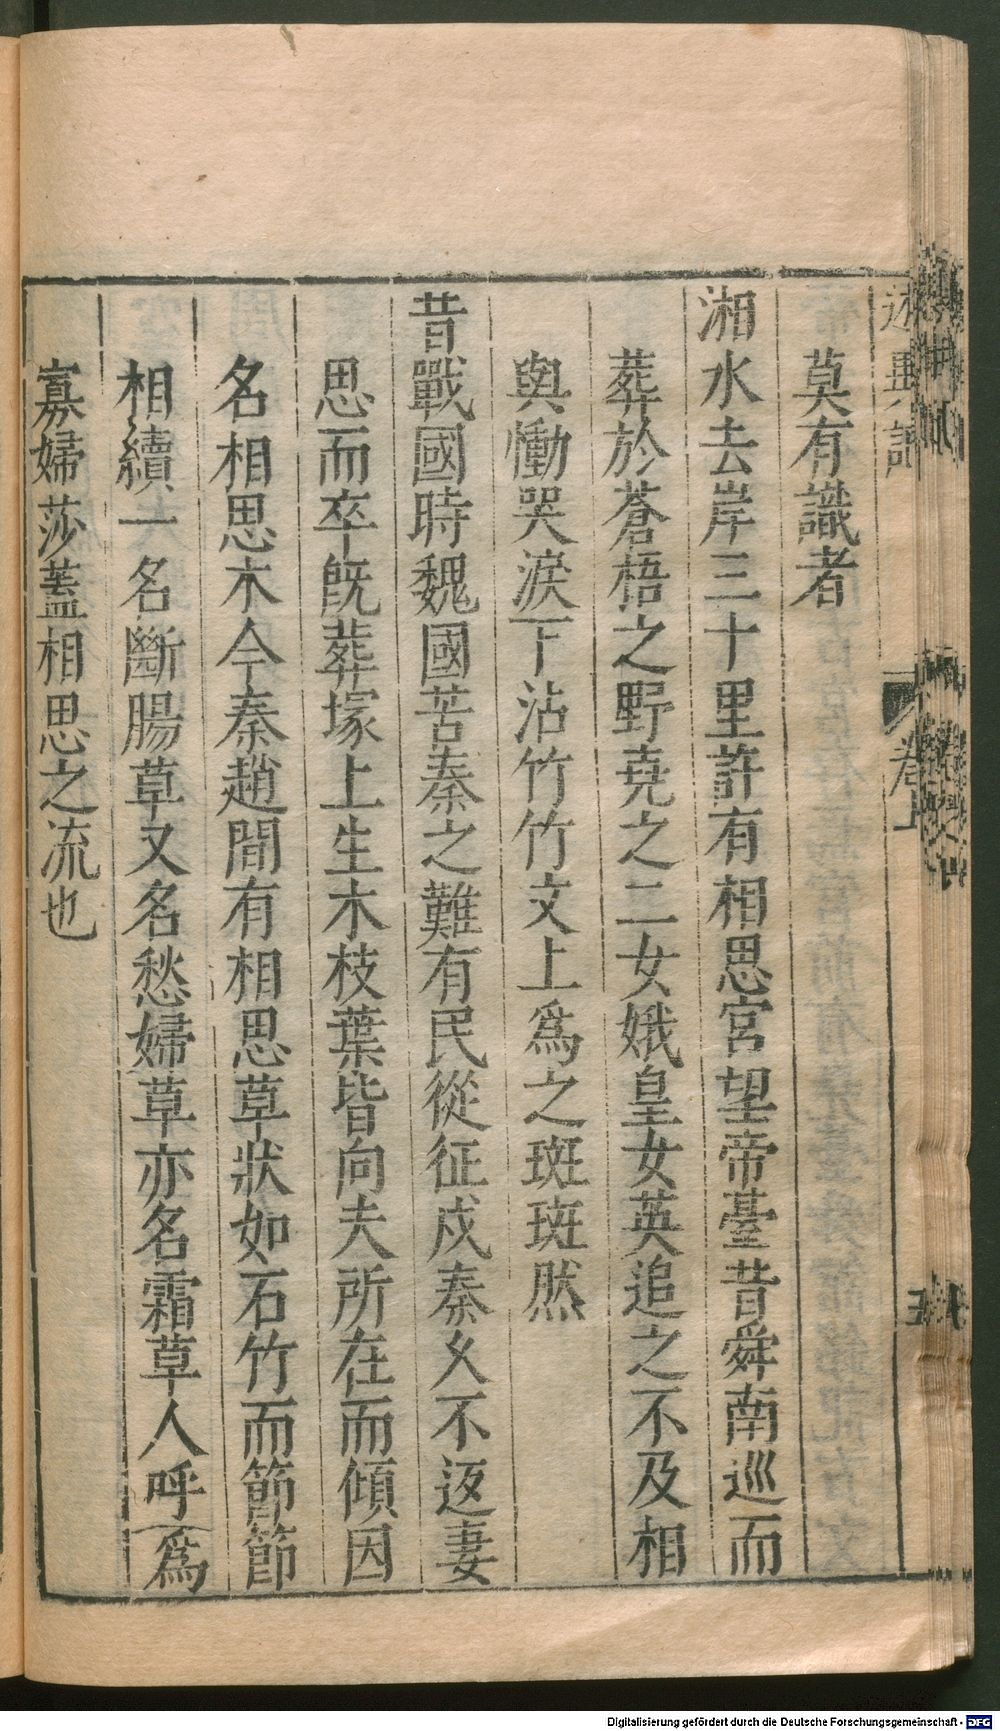 述異記 卷上 五
莫有識者
湘水去岸三十里許有相思宮望帝臺昔舜南巡而
葬於蒼梧之野堯之二女娥皇女英追之不及相
與慟哭淚下沾竹竹文上爲之斑斑然
昔戰國時魏國苦秦之難有民從征戍秦乆不返妻
思而卒旣葬塚上生木枝葉皆向夫所在而傾因
名相思木今秦趙間有相思草狀如石竹而節節
相續一名斷腸草又名愁婦草亦名霜草人呼爲
寡婦莎蓋相思之流也
Digitalisierung gefördert durch die Deutsche Forschungsgemeinschaft - DFG